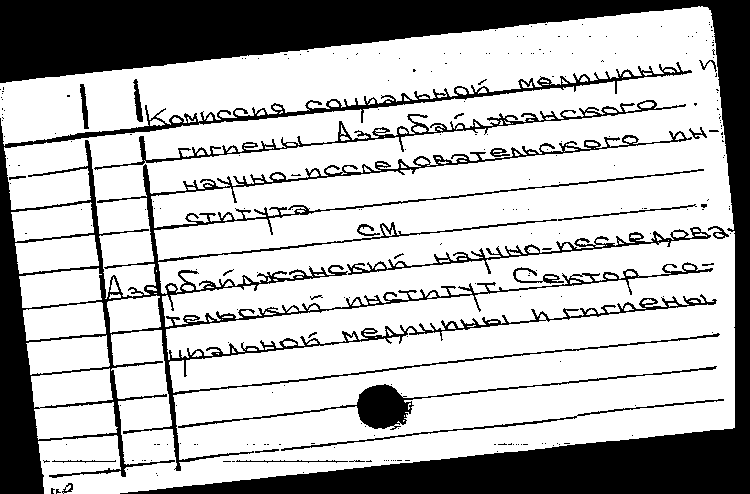 Комиссия социальной медицины и
гигиены Азербайджанского
научно-исследовательского ин-
ститута
см.
Азербайджанский научно-исследова-
тельский институт. Сектор со-
циальной медицины и гигиены